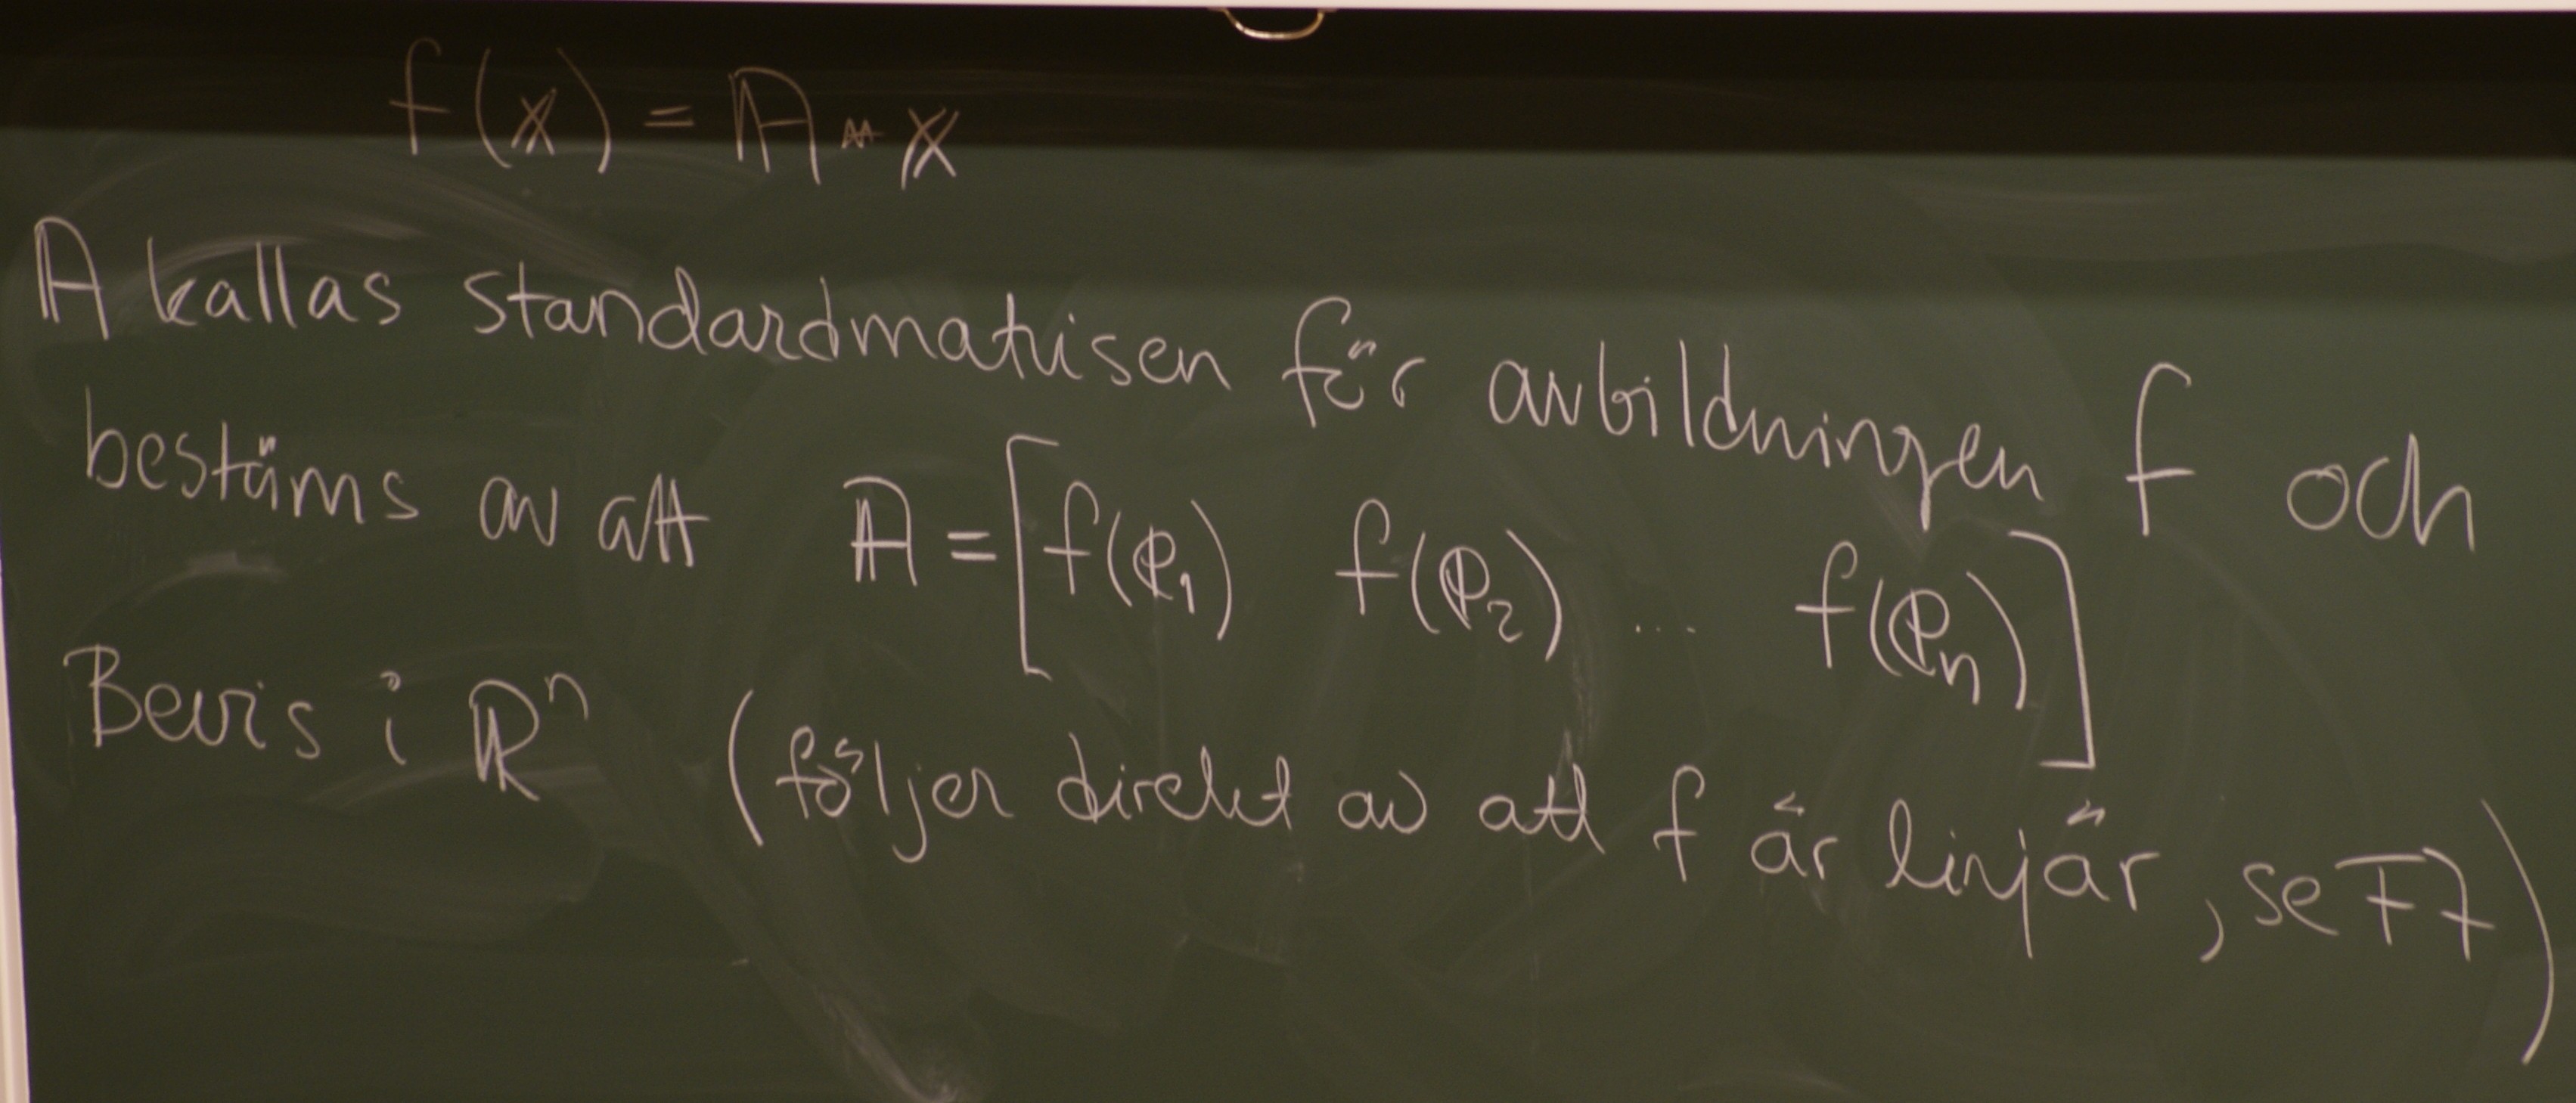 f(𝕩) = 𝔸 𝕩
𝔸 kallas standardmatrisen för avbildningen f och
bestäms av att 𝔸 = [f(𝕖₁) f(𝕖₂) ... f(𝕖ₙ)]
Bevis i ℝⁿ (följer direkt av att f är linjär, se F7)